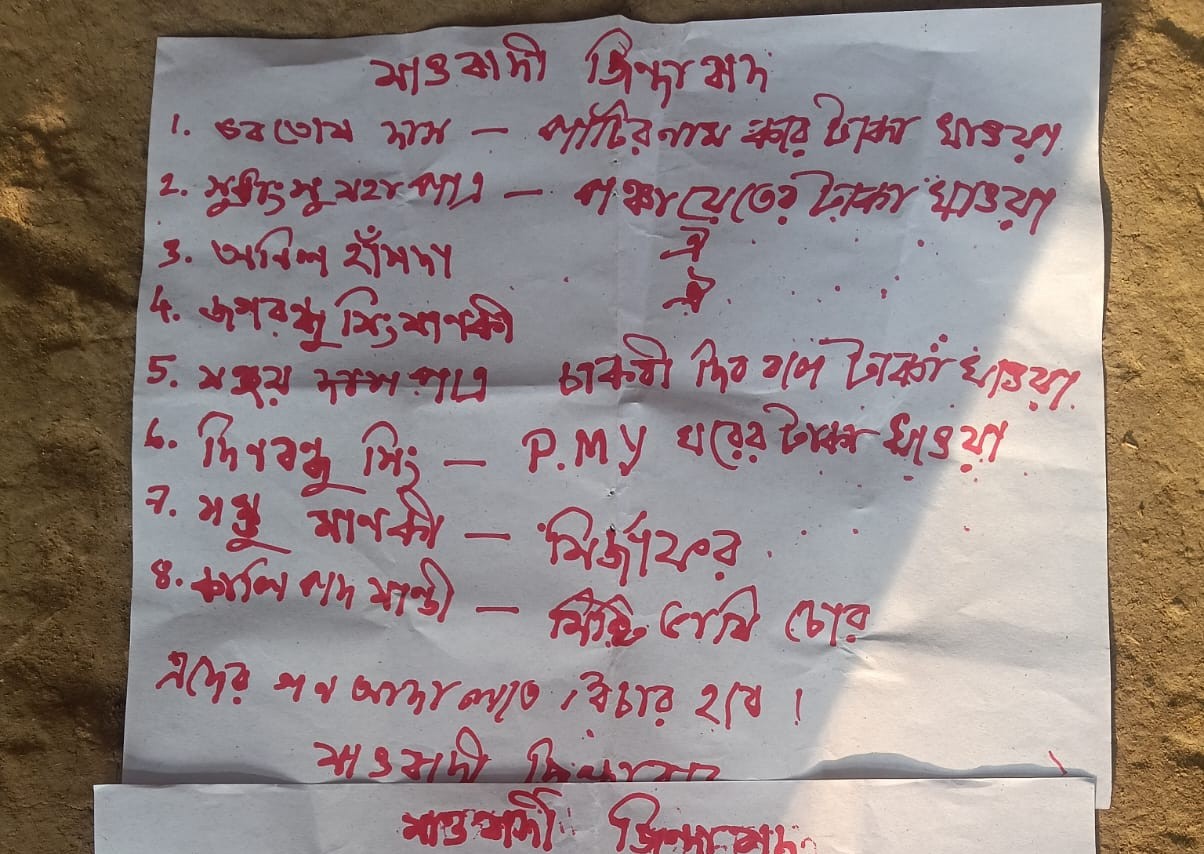 মাওবাদী জিন্দাবাদ
1. ভবতোষ দাস — পার্টির নাম করে টাকা খাওয়া
2. সুধাংসু মহাপাত্র — পঞ্চায়েতের টাকা খাওয়া
3. অনিল হাঁসদা ঐ
4. জগবন্ধু সিং মানকী ঐ
5. সঞ্জয় দাস পাত্র চাকরী দিব বলে টাকা খাওয়া
6. দিনবন্ধু সিং — P.M.Y ঘরের টাকা খাওয়া
7. সম্ভু মানকী — মির্জাফর
8. কালিপদ মান্ডী — মিষ্টি ভাষি চোর
এদের গন আদালতে বিচার হবে।
মাওবাদী জিন্দাবাদ
মাওবাদী জিন্দাবাদ